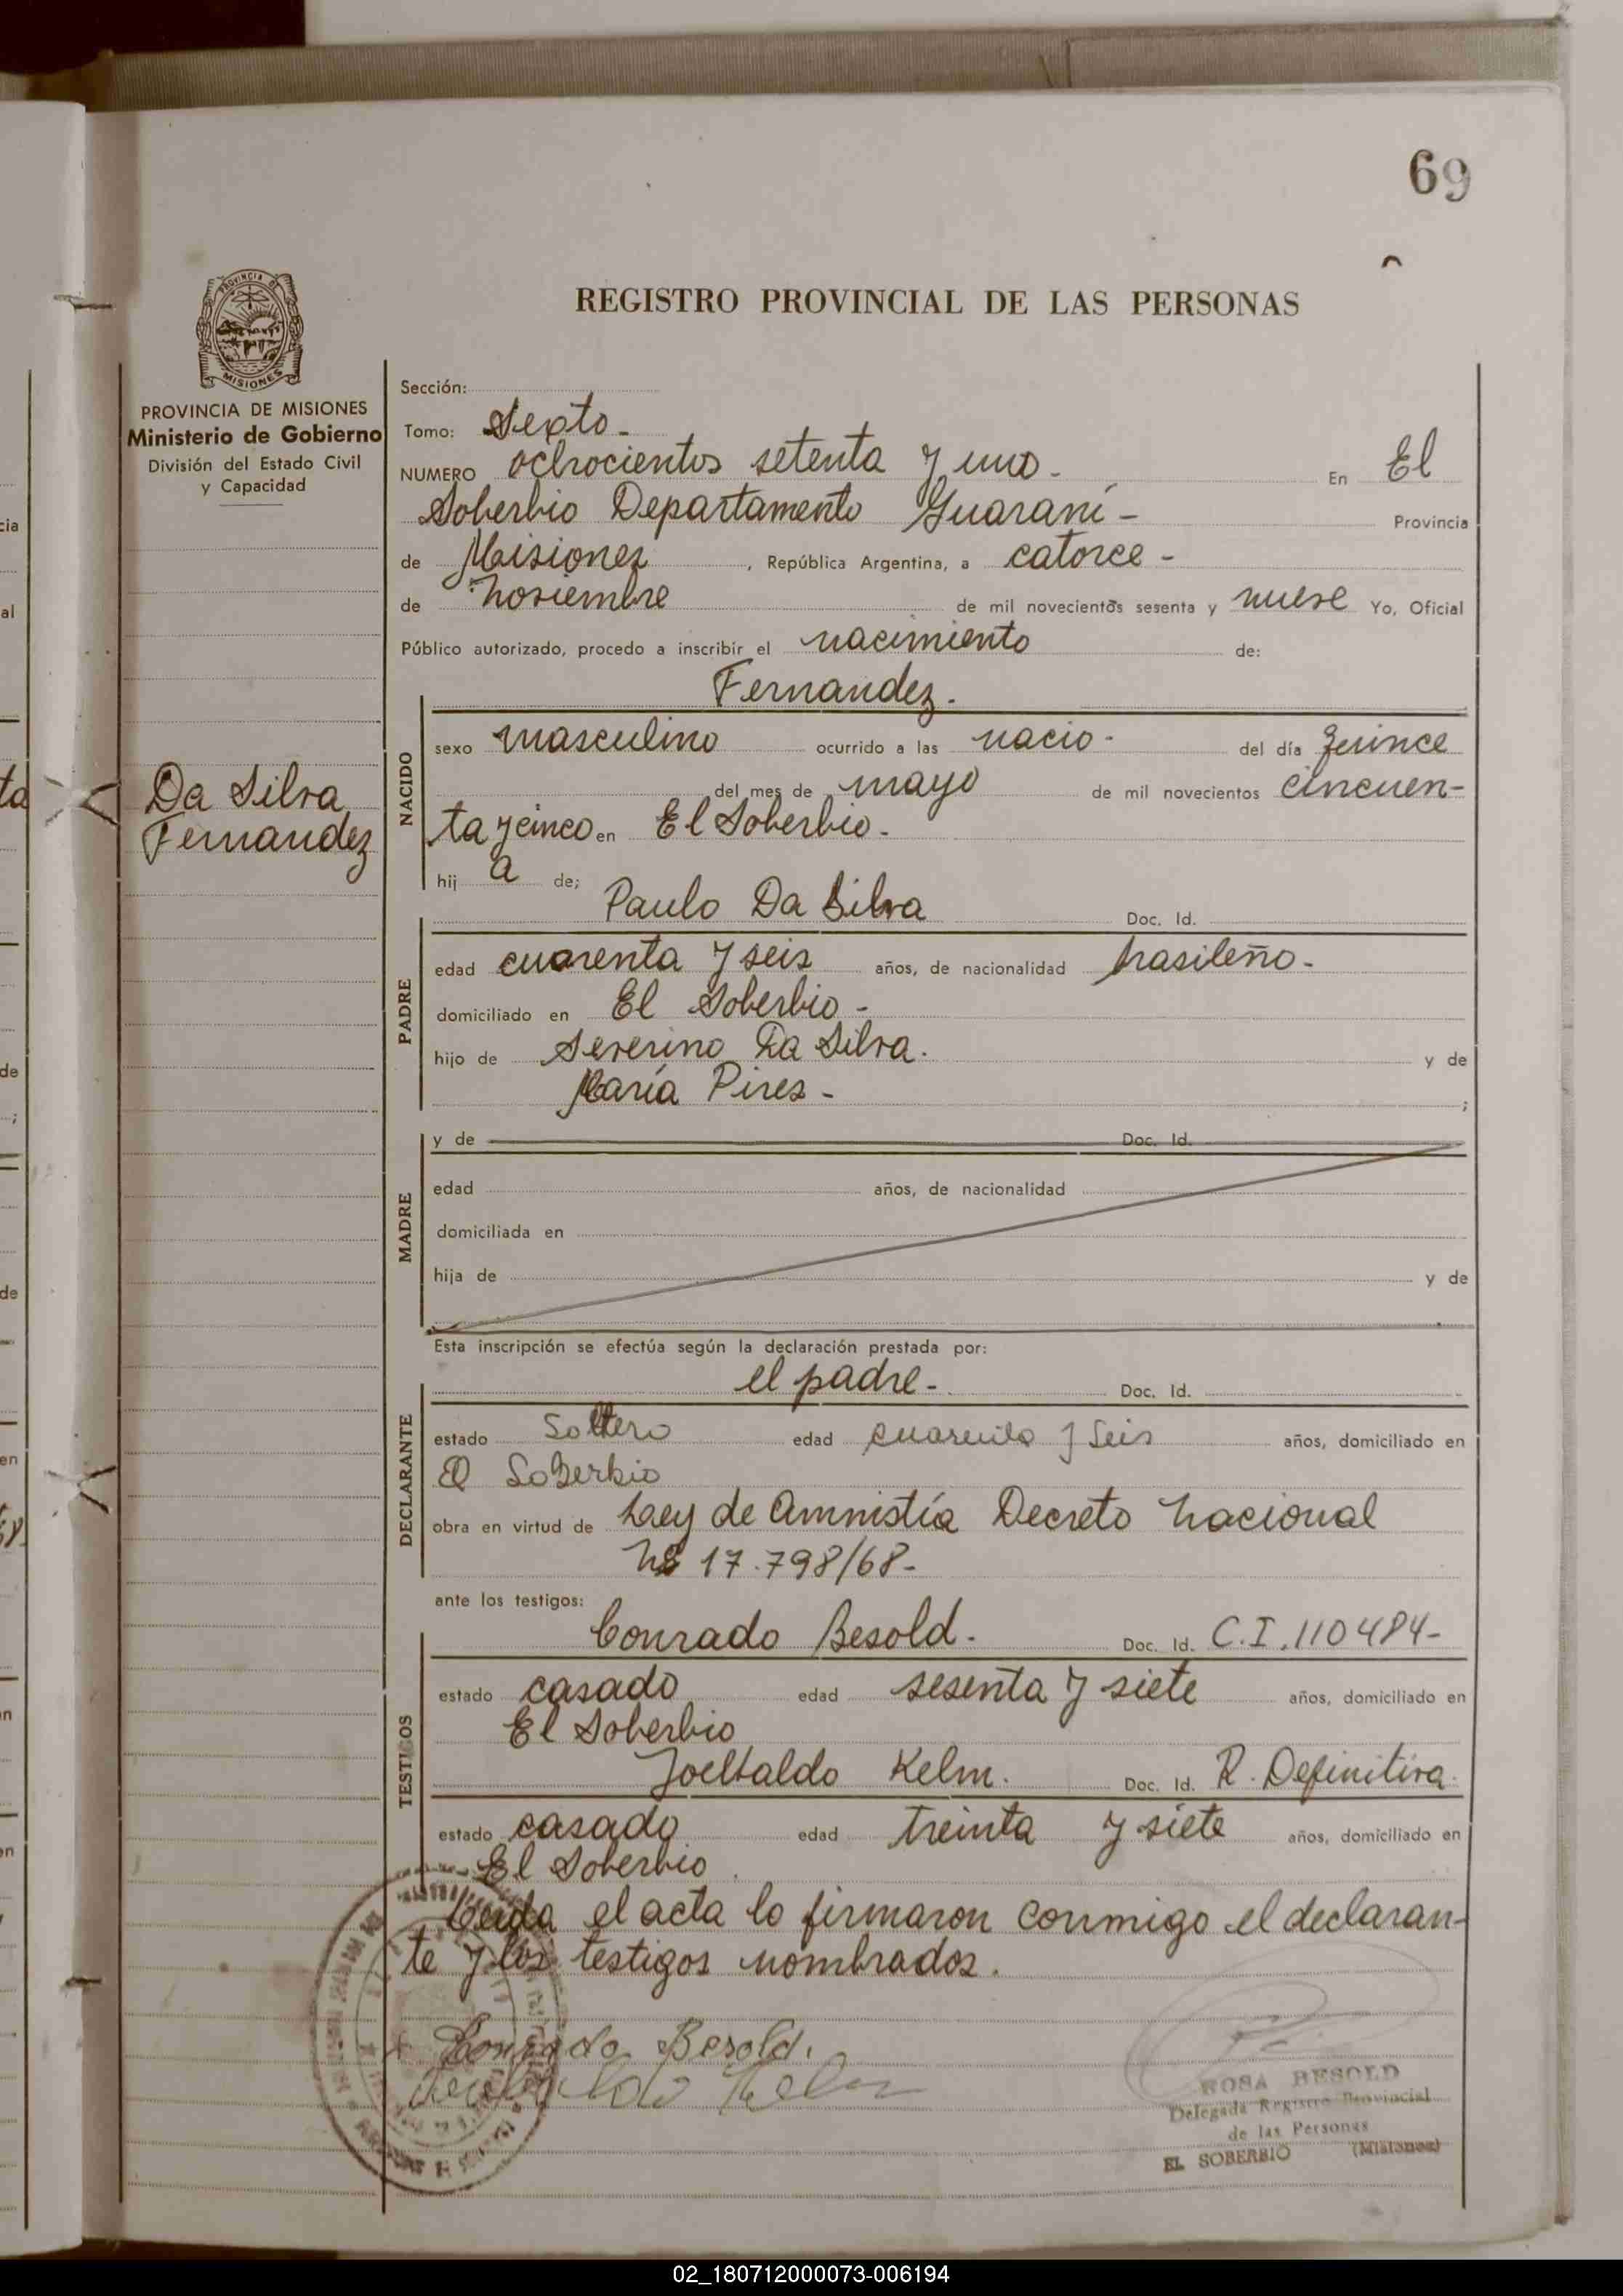 69
REGISTRO PROVINCIAL DE LAS PERSONAS
PROVINCIA DE MISIONES
Ministerio de Gobierno
División del Estado Civil
y Capacidad
Da Silva
Fernandez
Sección:
Tomo: Sexto -
NUMERO ochocientos setenta y uno - En El
Soberbio Departamento Guaraní - Provincia
de Misiones, República Argentina, a catorce -
de noviembre de mil novecientos sesenta y nueve Yo, Oficial
Público autorizado, procedo a inscribir el nacimiento de:
Fernandez.
NACIDO
sexo masculino ocurrido a las nacio - del día quince
del mes de mayo de mil novecientos cincuen-
ta y cinco en El Soberbio -
hij a de;
Paulo Da Silva Doc. Id.
PADRE
edad cuarenta y seis años, de nacionalidad brasileño -
domiciliado en El Soberbio -
hijo de Severino Da Silva. y de
María Pires - ;
MADRE
y de Doc. Id.
edad años, de nacionalidad
domiciliada en
hija de y de
Esta inscripción se efectúa según la declaración prestada por:
el padre - Doc. Id.
DECLARANTE
estado Soltero edad cuarenta y seis años, domiciliado en
El Soberbio
obra en virtud de Ley de Amnistía Decreto Nacional
Nº 17.798/68-
ante los testigos:
Conrado Besold. Doc. Id. C.I. 110484-
TESTIGOS
estado casado edad sesenta y siete años, domiciliado en
El Soberbio
Joelbaldo Kelm. Doc. Id. R. Definitiva.
estado casado edad treinta y siete años, domiciliado en
El Soberbio
Leida el acta lo firmaron conmigo el declaran-
te y los testigos nombrados.
Conrado Besold.
Kelm
ROSA BESOLD
Delegada Registro Provincial
de las Personas
EL SOBERBIO (Misiones)
02_180712000073-006194